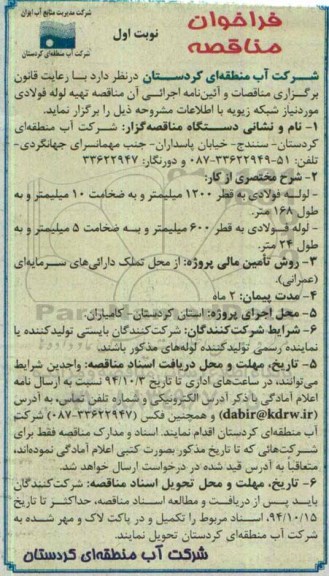 شرکت مدیریت منابع آب ایران
شرکت آب منطقه‌ای کردستان
نوبت اول
فراخوان
مناقصه
شرکت آب منطقه‌ای کردستان درنظر دارد با رعایت قانون
برگزاری مناقصات و آئین‌نامه اجرائی آن مناقصه تهیه لوله فولادی
موردنیاز شبکه زیویه با اطلاعات مشروحه ذیل را برگزار نماید.
۱- نام و نشانی دستگاه مناقصه‌گزار: شرکت آب منطقه‌ای
کردستان-سنندج-خیابان پاسداران-جنب مهمانسرای جهانگردی-
تلفن: ۵۱-۳۳۶۲۲۹۴۹-۰۸۷ و دورنگار: ۳۳۶۲۲۹۴۷
۲- شرح مختصری از کار:
- لوله فولادی به قطر ۱۲۰۰ میلیمتر و به ضخامت ۱۰ میلیمتر و به
طول ۱۶۸ متر.
- لوله فولادی به قطر ۶۰۰ میلیمتر و به ضخامت ۵ میلیمتر و به
طول ۲۴ متر.
۳- روش تأمین مالی پروژه: از محل تملک دارائی‌های سرمایه‌ای
(عمرانی).
۴- مدت پیمان: ۲ ماه
۵- محل اجرای پروژه: استان کردستان- کامیاران
۶- شرایط شرکت‌کنندگان: شرکت‌کنندگان بایستی تولیدکننده یا
نماینده رسمی تولیدکننده لوله‌های مذکور باشند.
۵- تاریخ، مهلت و محل دریافت اسناد مناقصه: واجدین شرایط
می‌توانند، در ساعت‌های اداری تا تاریخ ۹۴/۱۰/۳ نسبت به ارسال نامه
اعلام آمادگی با ذکر آدرس الکترونیکی و شماره تلفن تماس، به آدرس
(dabir@kdrw.ir) و همچنین فکس (۳۳۶۲۲۹۴۷-۰۸۷) شرکت
آب منطقه‌ای کردستان اقدام نمایند. اسناد و مدارک مناقصه فقط برای
شرکت‌هائی که تا تاریخ مذکور بصورت کتبی اعلام آمادگی نموده‌اند،
متعاقباً به آدرس قید شده در درخواست ارسال خواهد شد.
۶- تاریخ، مهلت و محل تحویل اسناد مناقصه: شرکت‌کنندگان
باید پس از دریافت و مطالعه اسناد مناقصه، حداکثر تا تاریخ
۹۴/۱۰/۱۵، اسناد مربوط را تکمیل و در پاکت لاک و مهر شده به
شرکت آب منطقه‌ای کردستان تحویل نمایند.
شرکت آب منطقه‌ای کردستان